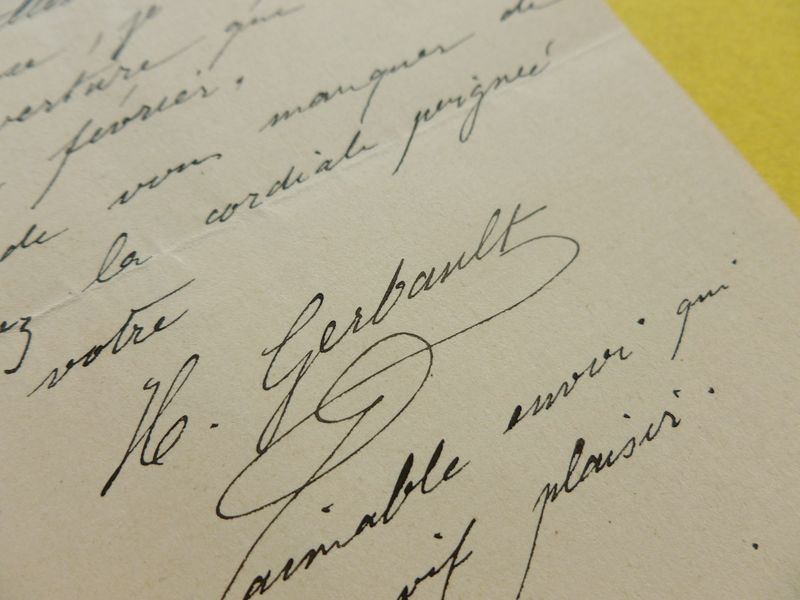 je
verture que
février.
de vous manquer de
ez la cordiale poignée
votre
H. Gerbault
aimable envoi qui
vif plaisir.